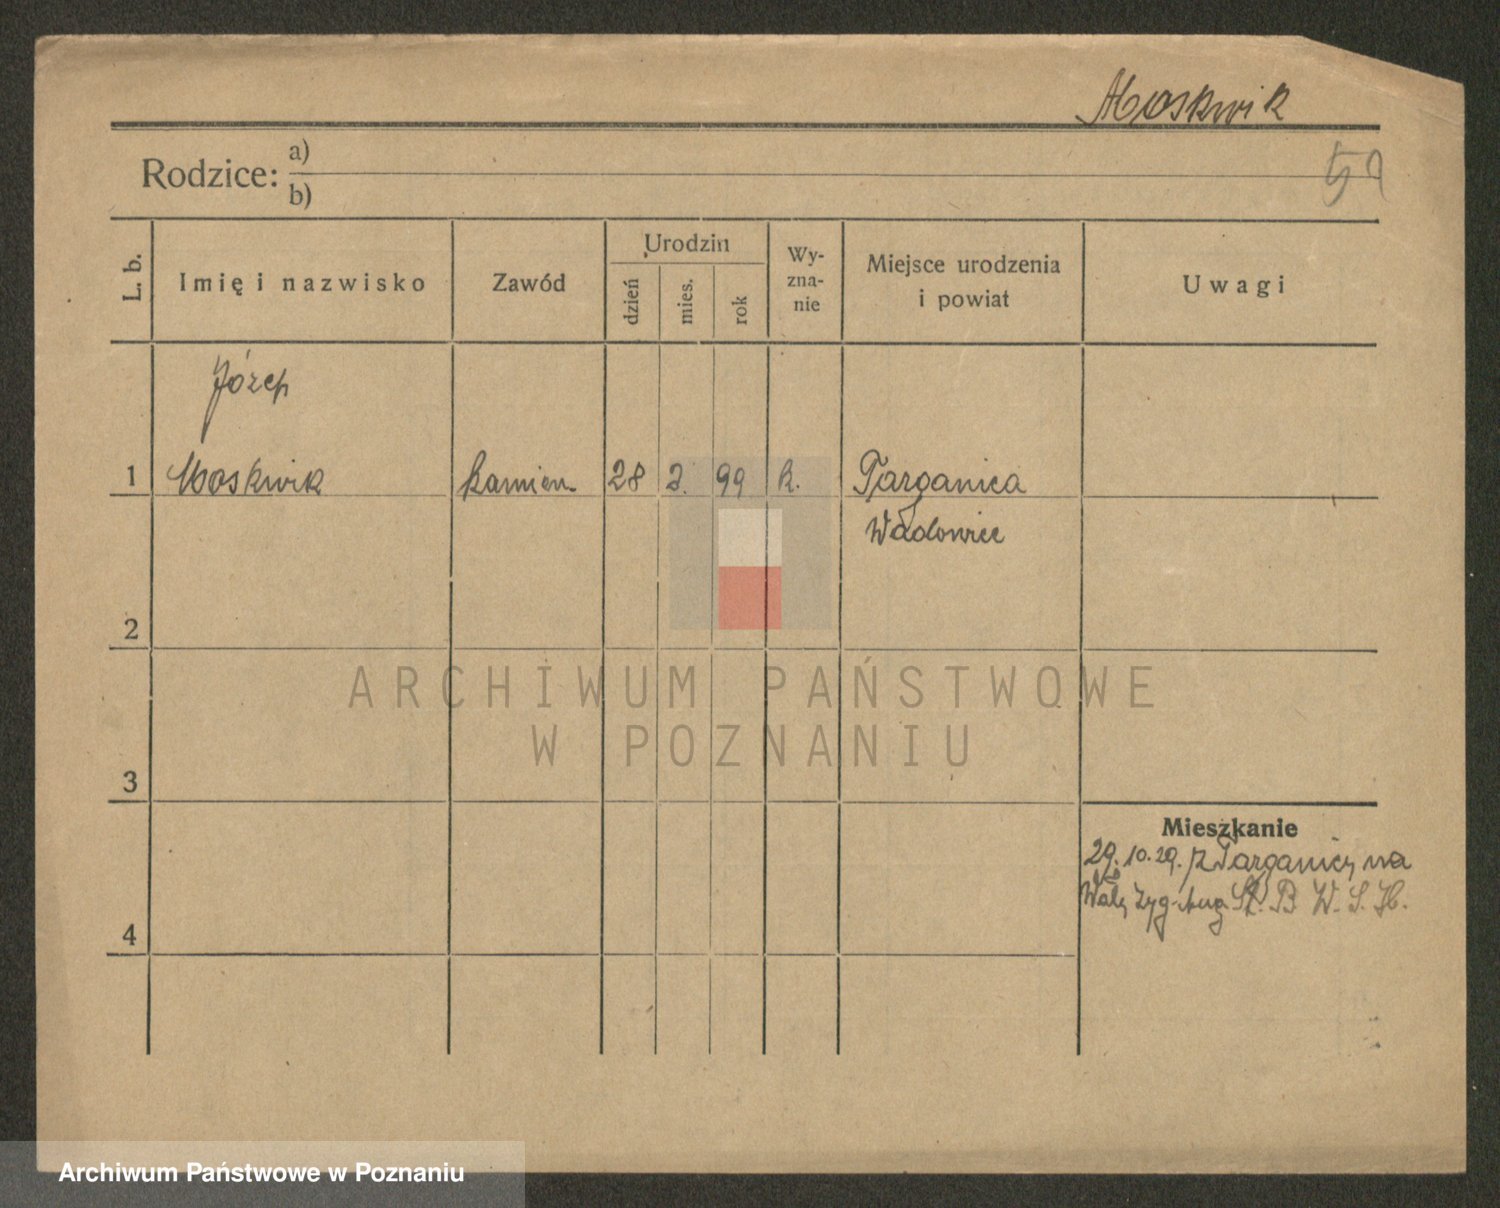 Moskwik
Rodzice: a)
b)
59
L. b.
Imię i nazwisko
Zawód
Urodzin
dzień
mies.
rok
Wy-
zna-
nie
Miejsce urodzenia
i powiat
Uwagi
Józef
1 Moskwik kamien. 28 2. 99 k. Targanica
Wadowice
2
ARCHIWUM PAŃSTWOWE
W POZNANIU
3
Mieszkanie
29.10.29. z Targanicy na
Wały Zyg. Aug. St. B W. S. H.
4
Archiwum Państwowe w Poznaniu